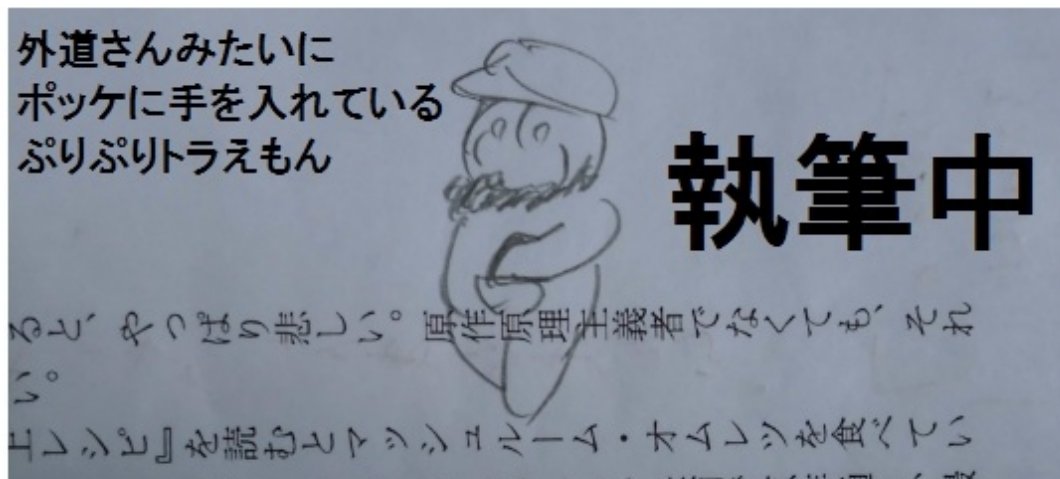 外道さんみたいに
ポッケに手を入れている
ぷりぷりトラえもん
執筆中
ると、やっぱり悲しい。原作原理主義者でなくても、それ
い。
エレシピ』を読むとマッシュルーム・オムレツを食べてい